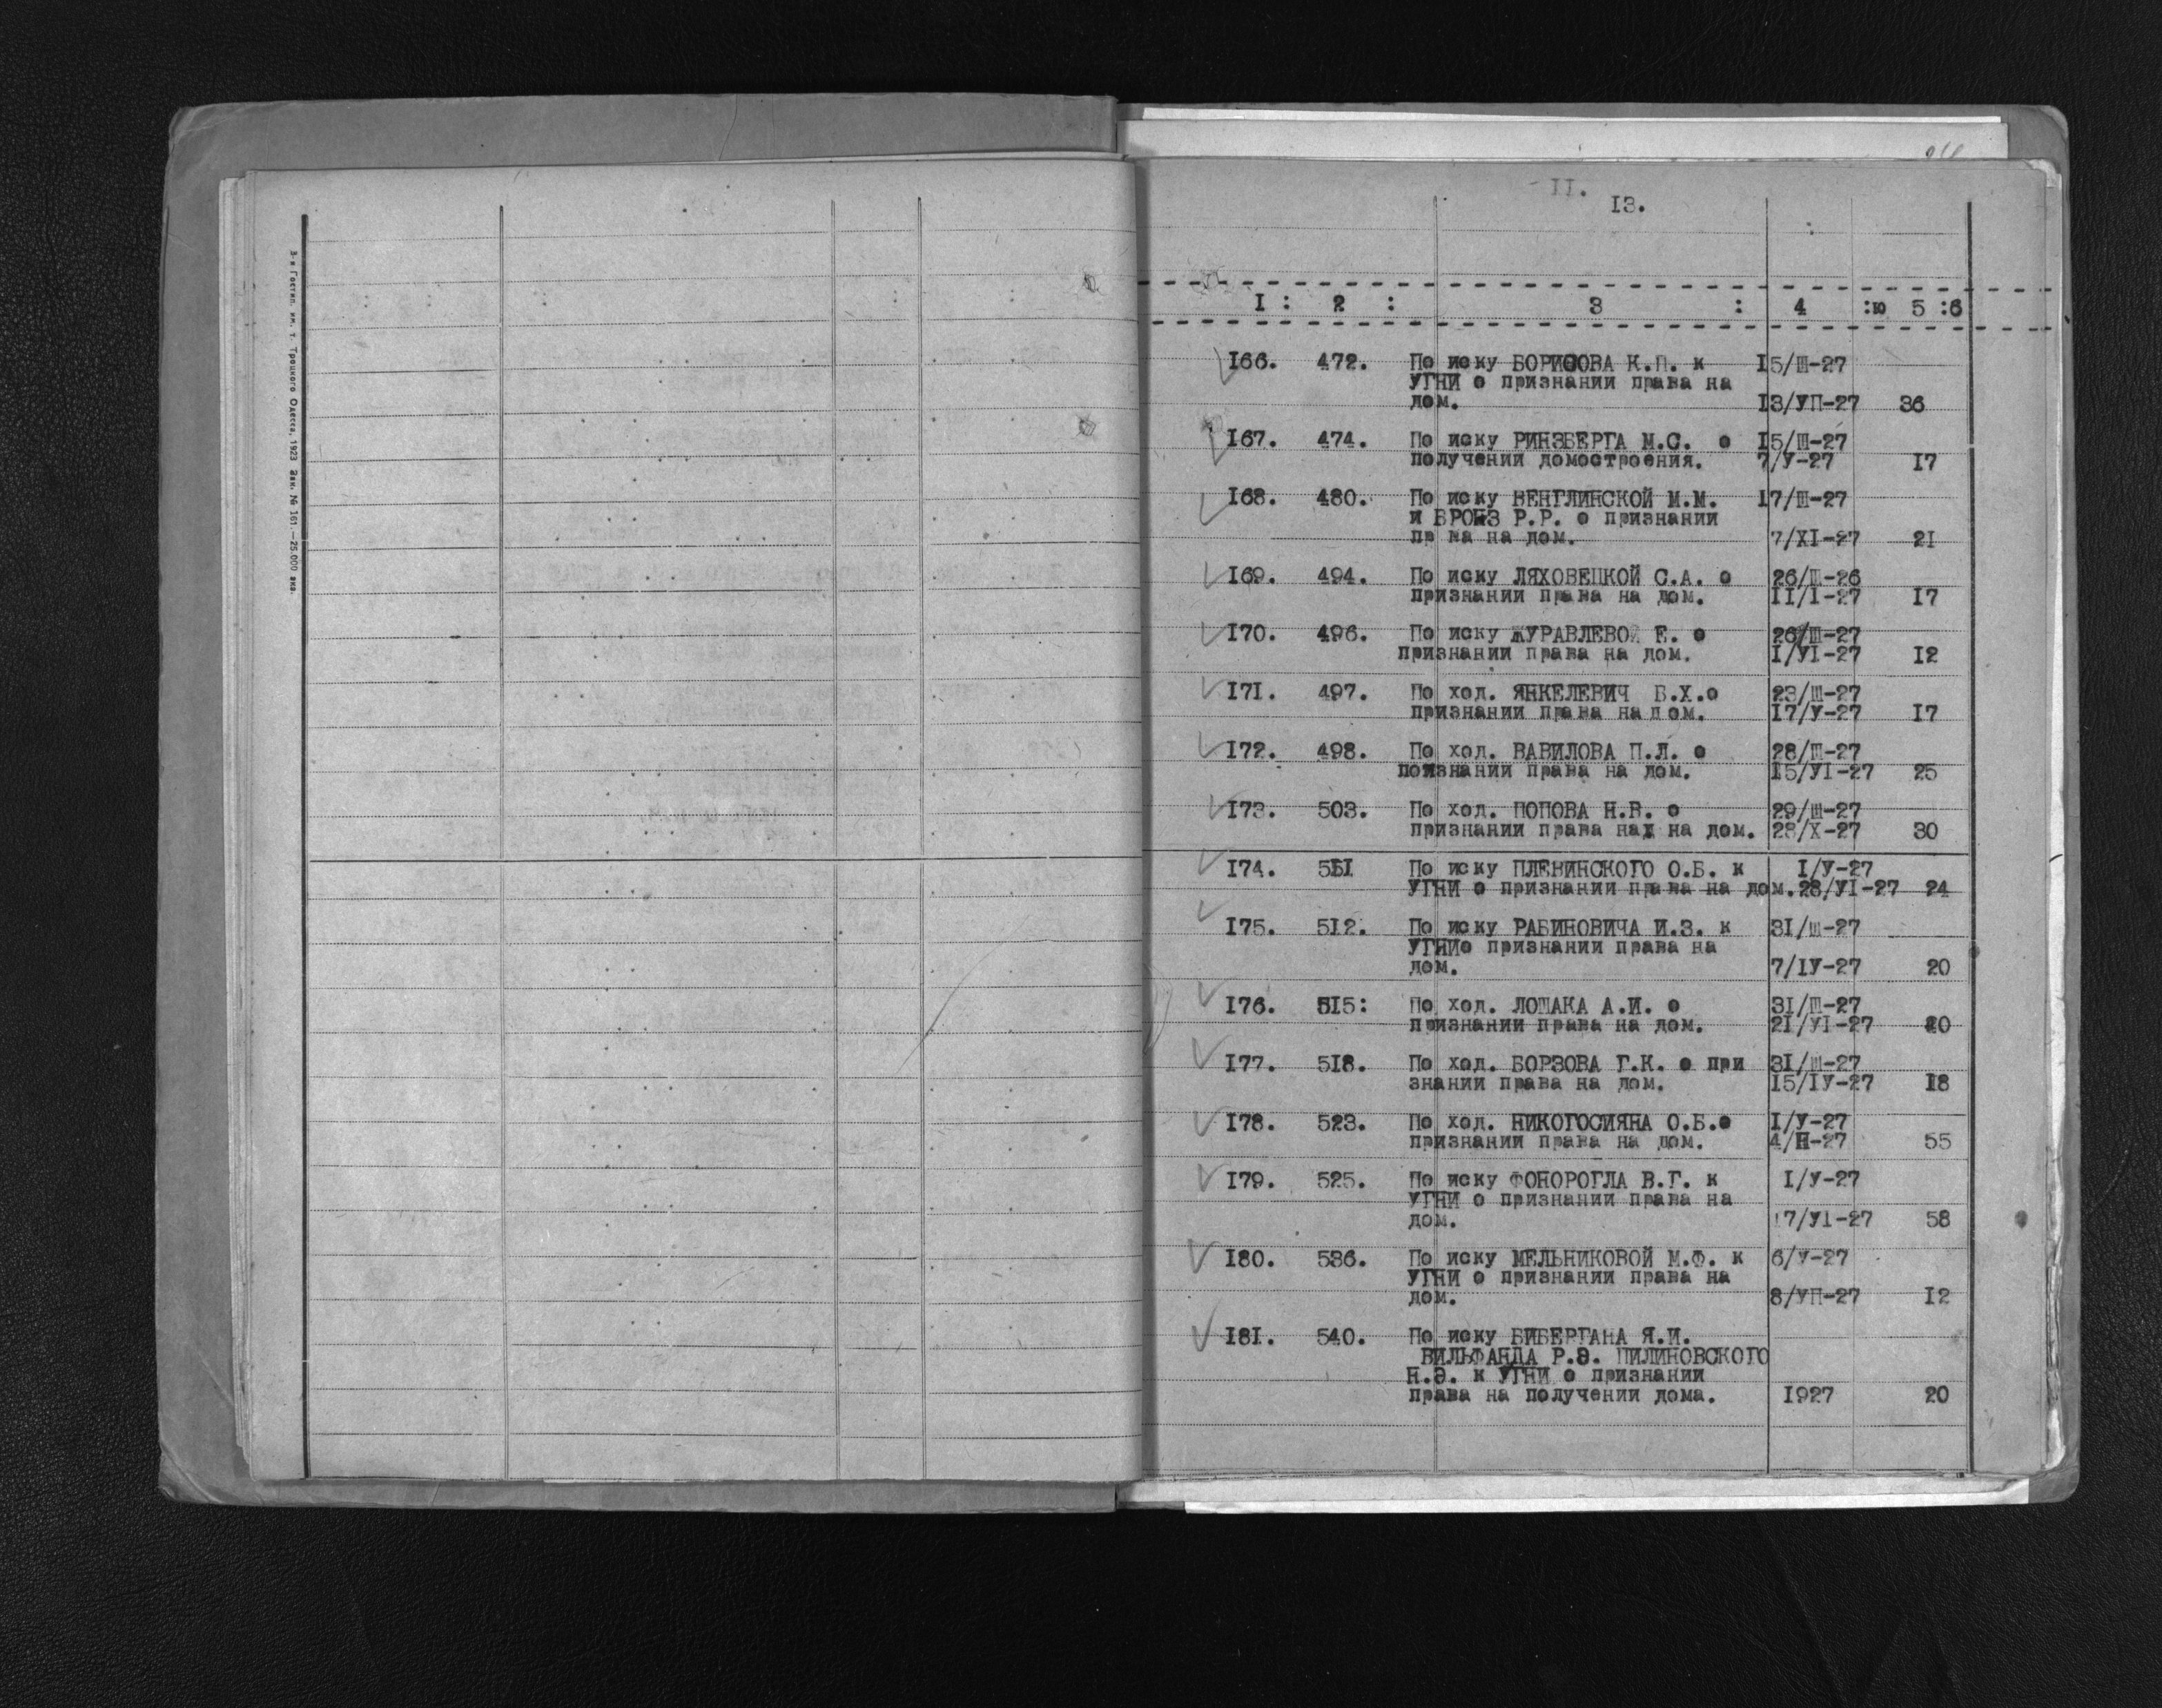 3-я Гостип. им. т. Троцкого Одесса, 1923 Зак. № 161—25.000 экз.
II.
I3.
I : 2 : 3 : 4 :ю 5 :6
I66. 472. По иску БОРИСОВА К.П. к I5/Ш-27
УГНИ о признании права на
дом. I3/УП-27 36
I67. 474. По иску РИНЗБЕРГА М.С. о I5/Ш-27
получении домостроения. 7/У-27 I7
I68. 480. По иску ВЕНГЛИНСКОЙ М.М. I7/Ш-27
и Р.Р. о признании
пр ва на дом. 7/XI-27 2I
I69. 494. По иску ЛЯХОВЕЦКОЙ С.А. о 26/Ш-26
признании права на дом. II/I-27 I7
I70. 496. По иску ЖУРАВЛЕВОЙ Е. о 26/Ш-27
признании права на дом. I/УI-27 I2
I7I. 497. По ход. ЯНКЕЛЕВИЧ Б.Х.о 23/Ш-27
признании права на дом. I7/У-27 I7
I72. 498. По ход. ВАВИЛОВА П.Л. о 28/Ш-27
познании права на дом. I5/УI-27 25
I73. 503. По ход. ПОПОВА Н.В. о 29/Ш-27
признании права нах на дом. 28/Х-27 30
I74. 5II По иску ПЛЕВИНСКОГО О.Б. к I/У-27
УГНИ о признании права на дом. 28/УI-27 24
I75. 5I2. По иску РАБИНОВИЧА И.З. к 3I/Ш-27
УГНИо признании права на
дом. 7/IУ-27 20
I76. 5I5: По ход. ЛОШАКА А.И. о 3I/Ш-27
признании права на дом. 2I/УI-27 20
I77. 5I8. По ход. БОРЗОВА Г.К. о при 3I/Ш-27
знании права на дом. I5/IУ-27 I8
I78. 523. По ход. НИКОГОСИЯНА О.Б.о I/У-27
признании права на дом. 4/Н-27 55
I79. 525. По иску ФОНОРОГЛА В.Г. к I/У-27
УГНИ о признании права на
дом. I7/УI-27 58
I80. 536. По иску МЕЛЬНИКОВОЙ М.Ф. к 6/У-27
УГНИ о признании права на
дом. 8/УП-27 I2
I8I. 540. По иску БИБЕРГАНА Я.И.
ВИЛЬФАНДА Р.Э. ПИЛИНОВСКОГО
Н.Э. к УГНИ о признании
права на получении дома. I927 20